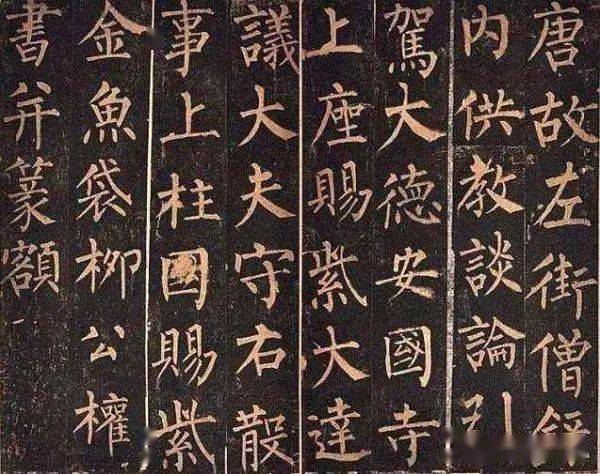 唐故左街僧
內供教談論引
駕大德安國寺
上座賜紫大達
議大夫守右散
事上柱國賜紫
金魚袋柳公權
書并篆額